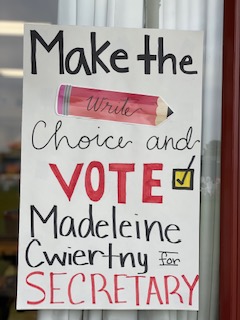 Make the
Write
Choice and
VOTE
Madeleine
Cwiertny for
SECRETARY